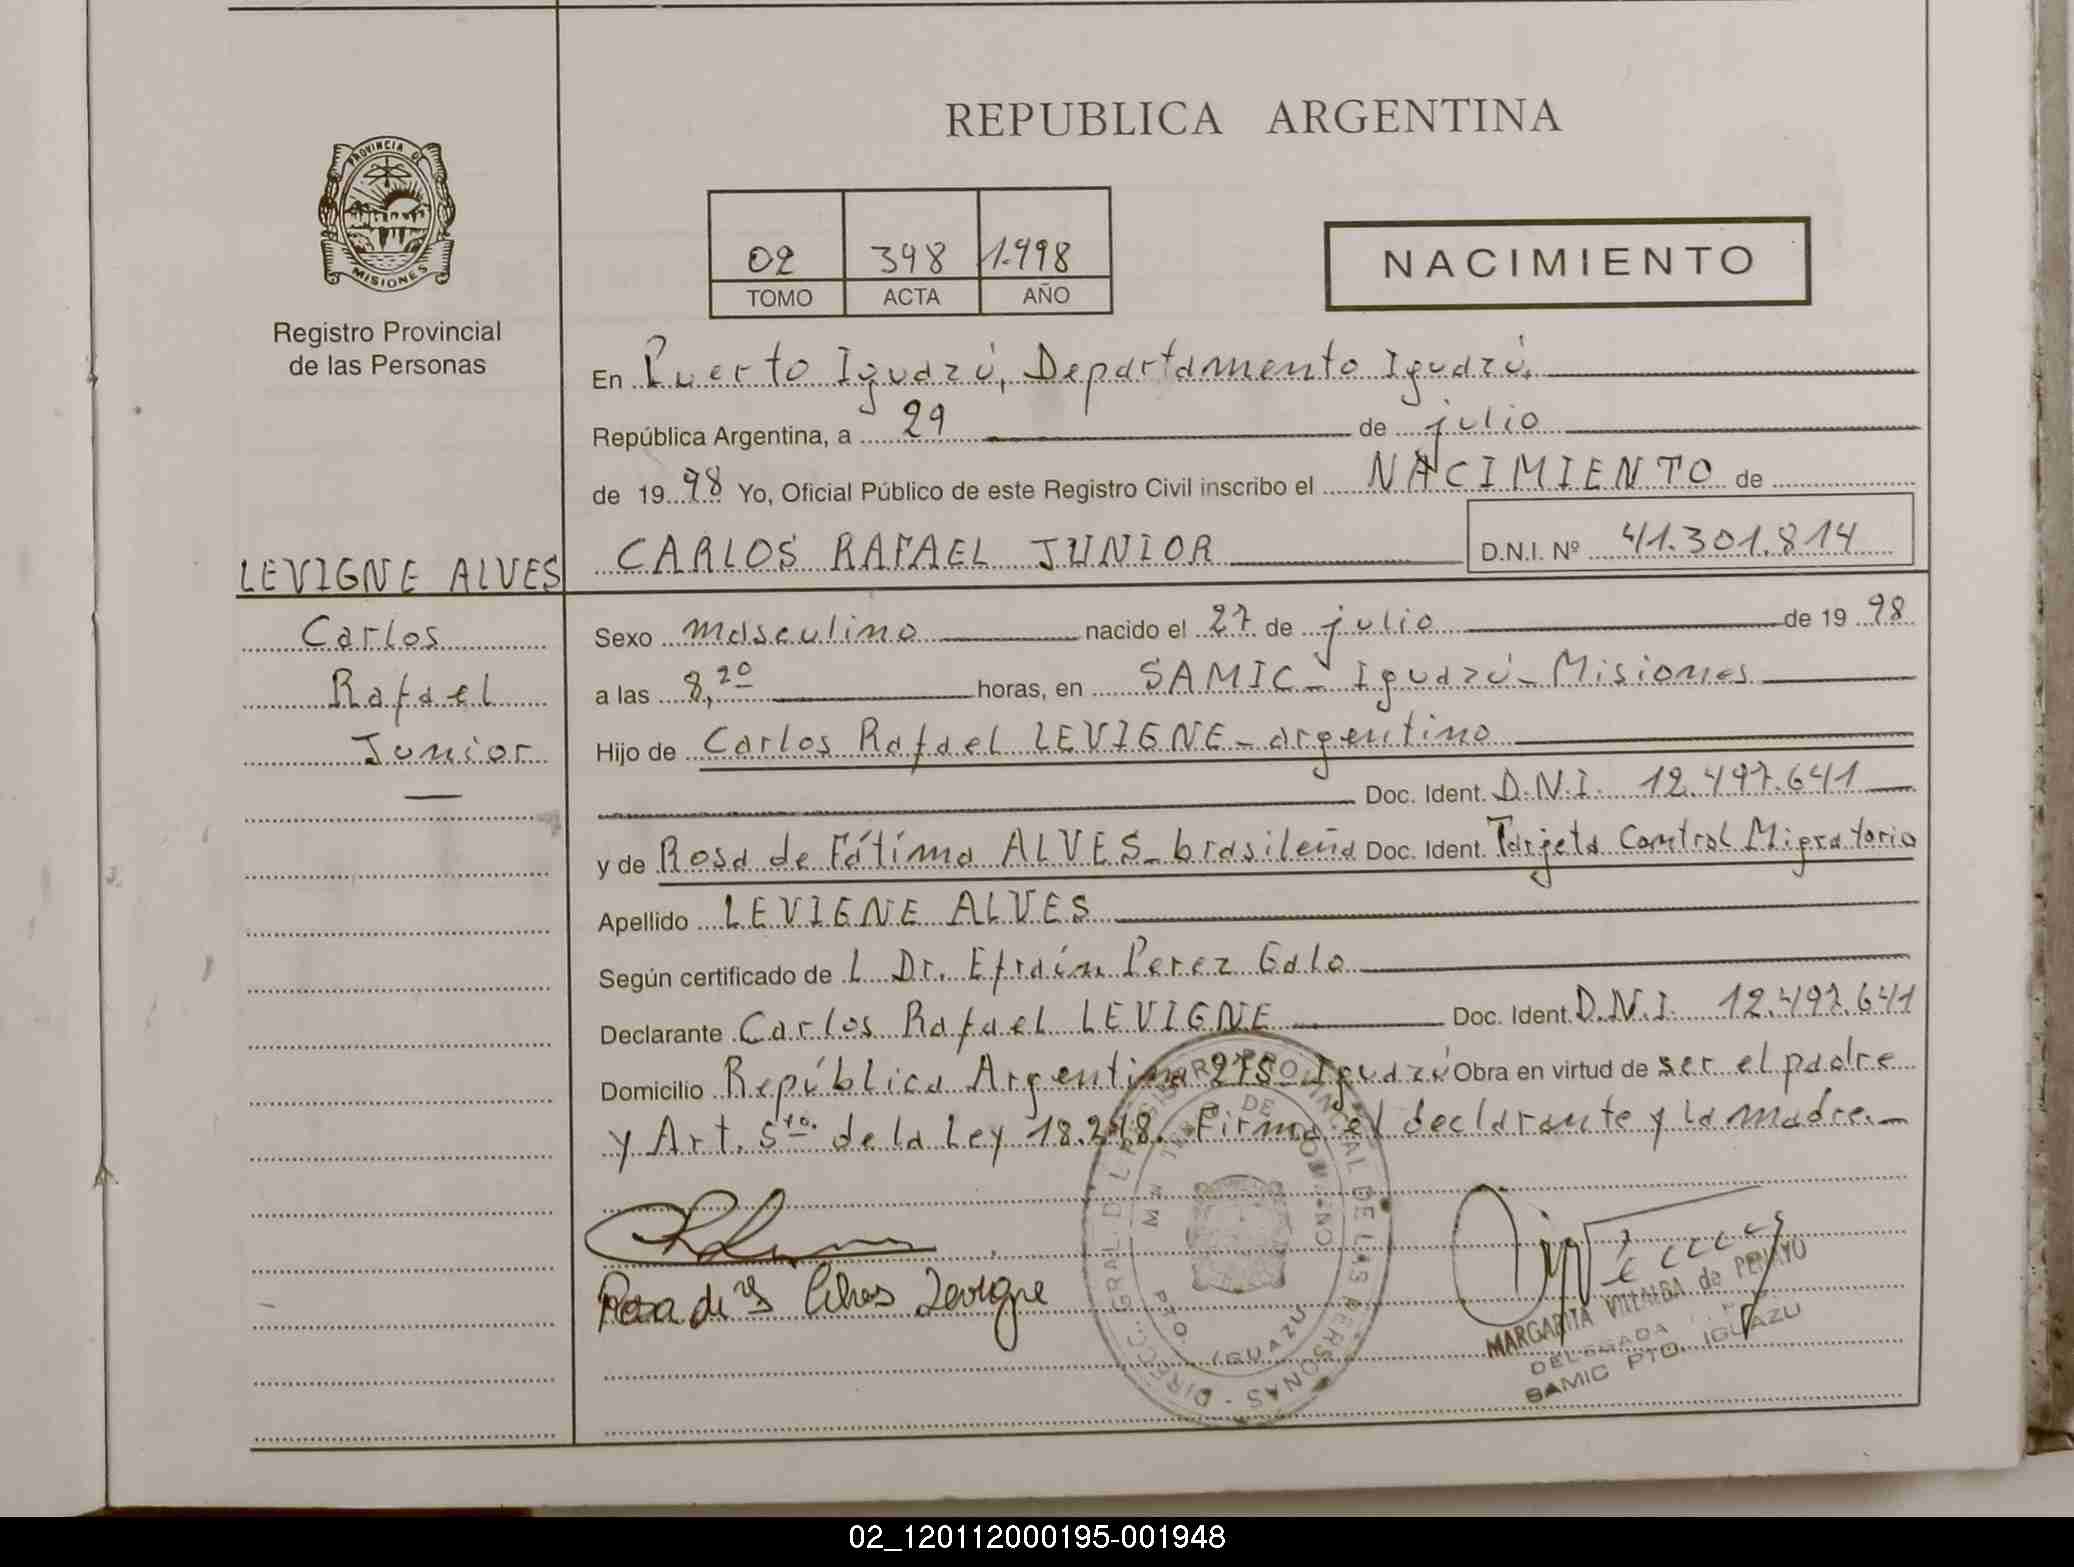 REPUBLICA ARGENTINA
PROVINCIA DE
MISIONES
Registro Provincial
de las Personas
02 398 1.998
TOMO ACTA AÑO
NACIMIENTO
En Puerto Iguazú, Departamento Iguazú.
República Argentina, a 29 de julio
de 1998 Yo, Oficial Público de este Registro Civil inscribo el NACIMIENTO de
CARLOS RAFAEL JUNIOR D.N.I. Nº 41.301.814
LEVIGNE ALVES
Carlos
Rafael
Junior
Sexo masculino nacido el 27 de julio de 1998
a las 8,20 horas, en SAMIC - Iguazú - Misiones
Hijo de Carlos Rafael LEVIGNE - argentino
Doc. Ident. D.N.I. 12.497.641
y de Rosa de Fátima ALVES - brasileña Doc. Ident. Tarjeta Control Migratorio
Apellido LEVIGNE ALVES
Según certificado de L Dr. Efraín Perez Galo
Declarante Carlos Rafael LEVIGNE Doc. Ident. D.N.I. 12.497.641
Domicilio República Argentina 275 - Iguazú Obra en virtud de ser el padre
y Art. 5to. de la Ley 18.248. Firma el declarante y la madre. -
Rosa de Alves Levigne
DIRECC. GRAL. DEL REGISTRO PROVINCIAL DE LAS PERSONAS
PTO. IGUAZU
MARGARITA VILLALBA de PENAYO
DELEGADA
SAMIC PTO. IGUAZU
02_120112000195-001948